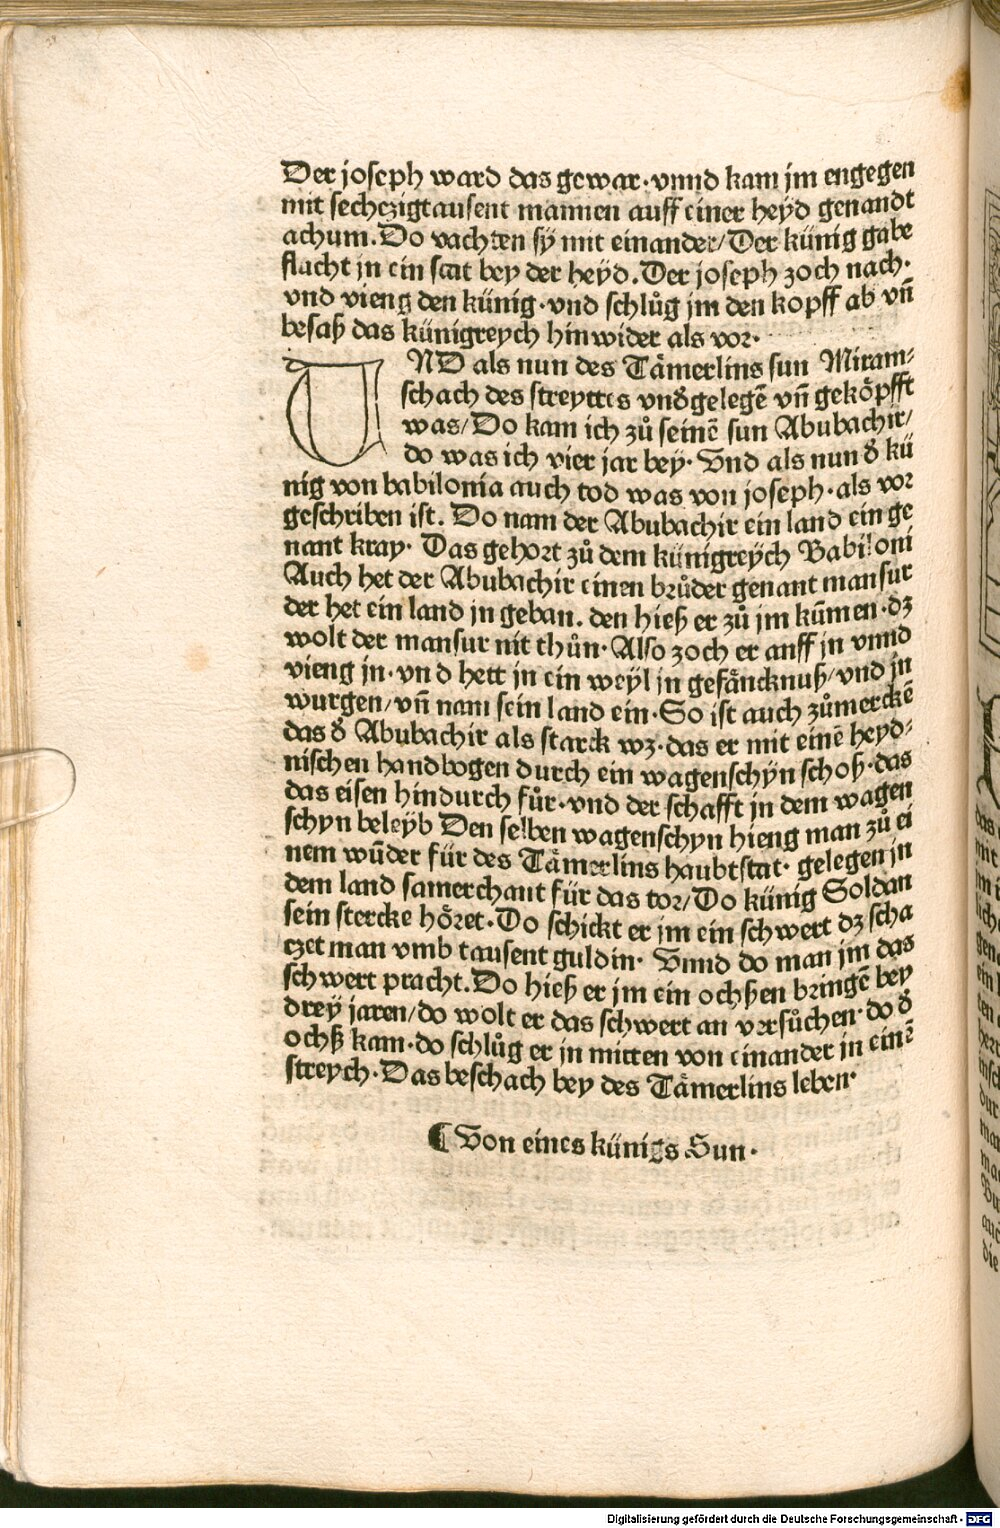 Der joseph ward das gewar·vnnd kam jm engegen
mit sechczigtausent mannen auff einer heyd genandt
achum. Do vachten sÿ mit einander/Der künig gabe
flucht jn ein stat bey der heyd. Der joseph zoch nach·
vnd vieng den künig·vnd schlůg jm den kopff ab vñ
besaß das künigreych hinwider als vor·
UND als nun des Tämerlins sun Miram⸗
schach des streyttes vnd̕gelegē vñ geköpfft
was/Do kam ich zů seinē sun Abubachir/
do was ich vier jar bey· Vnd als nun d̕ kü
nig von babilonia auch tod was von joseph·als vor
geschriben ist. Do nam der Abubachir ein land ein ge
nant kray· Das gehort zů dem künigreÿch Babiloni
Auch het der Abubachir einen brůder genant mansur
der het ein land jn geban. den hieß er zů jm kūmen·dz
wolt der mansur nit thůn· Also zoch er auff jn vnnd
vieng jn·vnd hett jn ein weÿl jn gefäncknuß/vnd jn
wurgen/vñ nam sein land ein·So ist auch zůmerckē
das d̕ Abubachir als starck wz·das er mit einē heyd⸗
nischen handbogen durch ein wagenschÿn schoß·das
das eisen hindurch fůr·vnd der schafft jn dem wagen
schyn beleÿb Den selben wagenschyn hieng man zů ei
nem wūder für des Tämerlins haubtstat· gelegen jn
dem land samerchant für das tor/Do künig Soldan
sein stercke höret·Do schickt er jm ein schwert dz scha
czet man vmb tausent guldin· Vnnd do man jm das
schwert pracht. Do hieß er jm ein ochßen bringē bey
drey jaren/do wolt er das schwert an versůchen·do d̕
ochß kam·do schlůg er jn mitten von einander in einē
streych·Das beschach bey des Tämerlins leben·
⸿ Von eines künigs Sun·
Digitalisierung gefördert durch die Deutsche Forschungsgemeinschaft - DFG